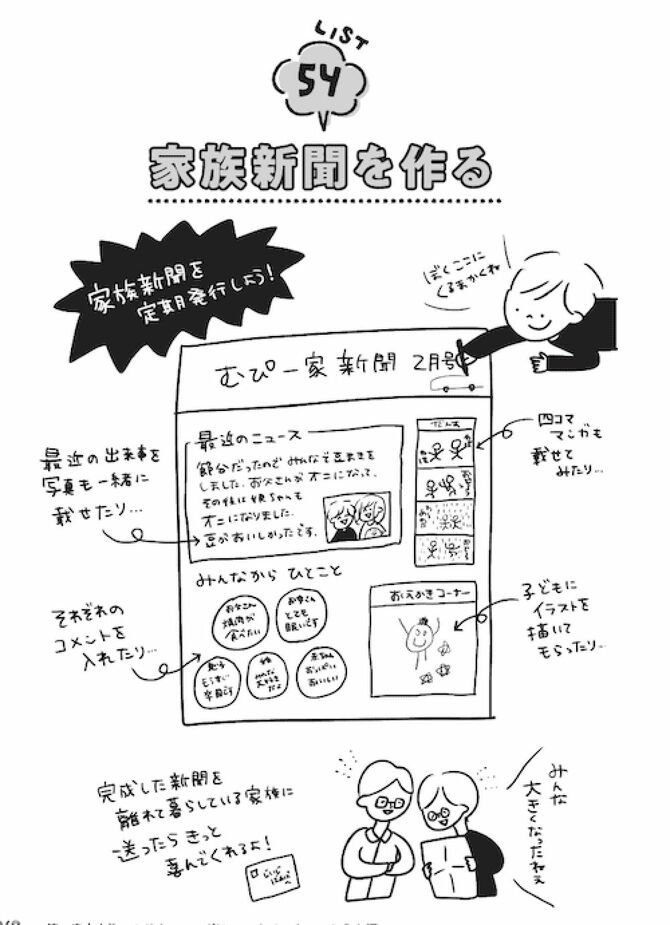 LIST
54
家族新聞を作る
家族新聞を
定期発行しよう!
ぼくここに
くるまかくね
むぴー家新聞 2月号
最近のニュース
節分だったので みんなで豆まきを
しました。お父さんが オニになって、
その後に娘ちゃんも
オニになりました。
豆がおいしかったです。
最近の出来事を
写真も一緒に
載せたり…
四コマ
マンガも
載せて
みたり…
みんなから ひとこと
お父さん
焼肉が
食べたい
お母さん
とても
眠いです
もうすぐ
卒園です
みんな
大好き
だよ
赤ちゃん
おっぱい
おいしい
それぞれの
コメントを
入れたり…
おえかきコーナー
子どもに
イラストを
描いて
もらったり…
完成した新聞を
離れて暮らしている家族に
送ったら きっと
喜んでくれるよ!
みんな
大きくなったねぇ